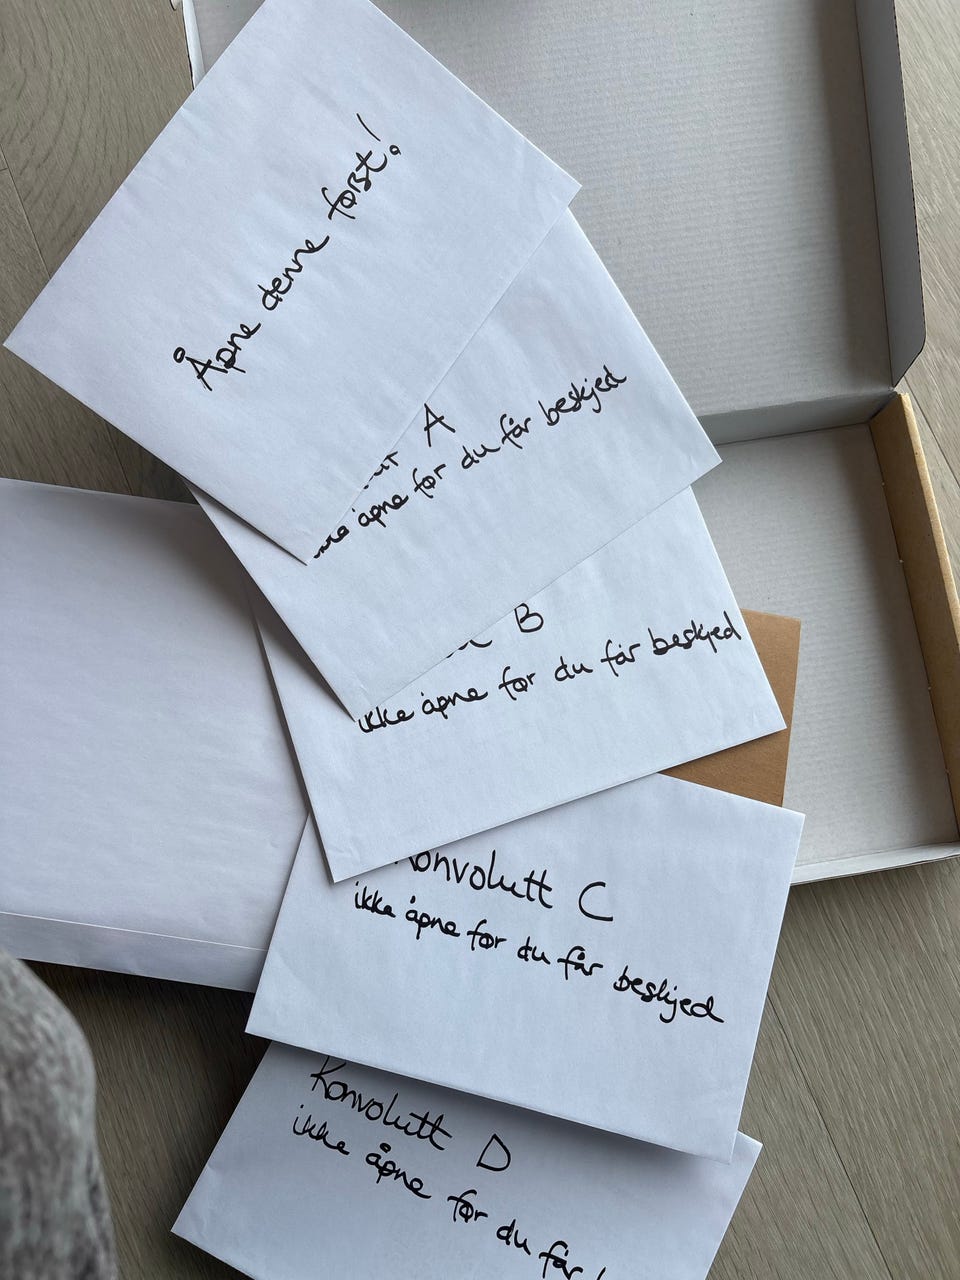 Åpne denne først!
A
åpne før du får beskjed
B
ikke åpne før du får beskjed
Konvolutt C
ikke åpne før du får beskjed
Konvolutt D
ikke åpne før du får